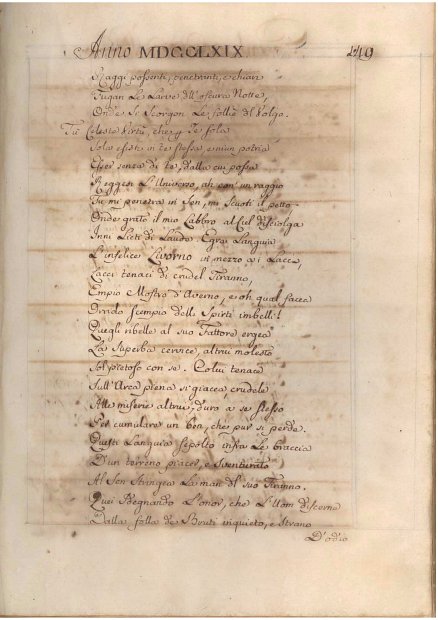 Anno MDCCLXIX 149
Raggi possenti, penetranti, e chiari
Fugan Le Larve dell'oscura Notte,
Onde Si Scorgon Le follie del Volgo.
Tù Celeste Virtù, che per Te sola
Sola esisti in te stessa, e niun potria
Esser senza di te, dalla cui possa
Reggesi L'Universo, ah con' un raggio
Tu mi penetra in Sen, mi Scuoti il petto
Onde grato il mio Labbro al Ciel disciolga
Inni Lieti di Laude. Egro Languia
L'infelice Livorno in mezzo ai Lacci,
Lacci tenaci di crudel Tiranno,
Empio Mostro d'Averno, e oh qual facea
Orrido scempio delli Spirti imbelli!
Quegli ribelle al suo Fattore ergea
La Superba cervice, altrui molesto
Sol pietoso con se. Colui tenace
Sull'Arca piena si giacea, crudele
Alle miserie altrui, duro a se stesso
Per cumulare un ben, che pur si perde.
Questi Languia sepolto infra Le braccia
D'un terreno piacer, e Sventurato
Al Sen Stringea La man del suo Tiranno.
Quei Spegnando L'onor, che L'Uom discerne
Dalla folla de Bruti inquieto, e strano
D'odio